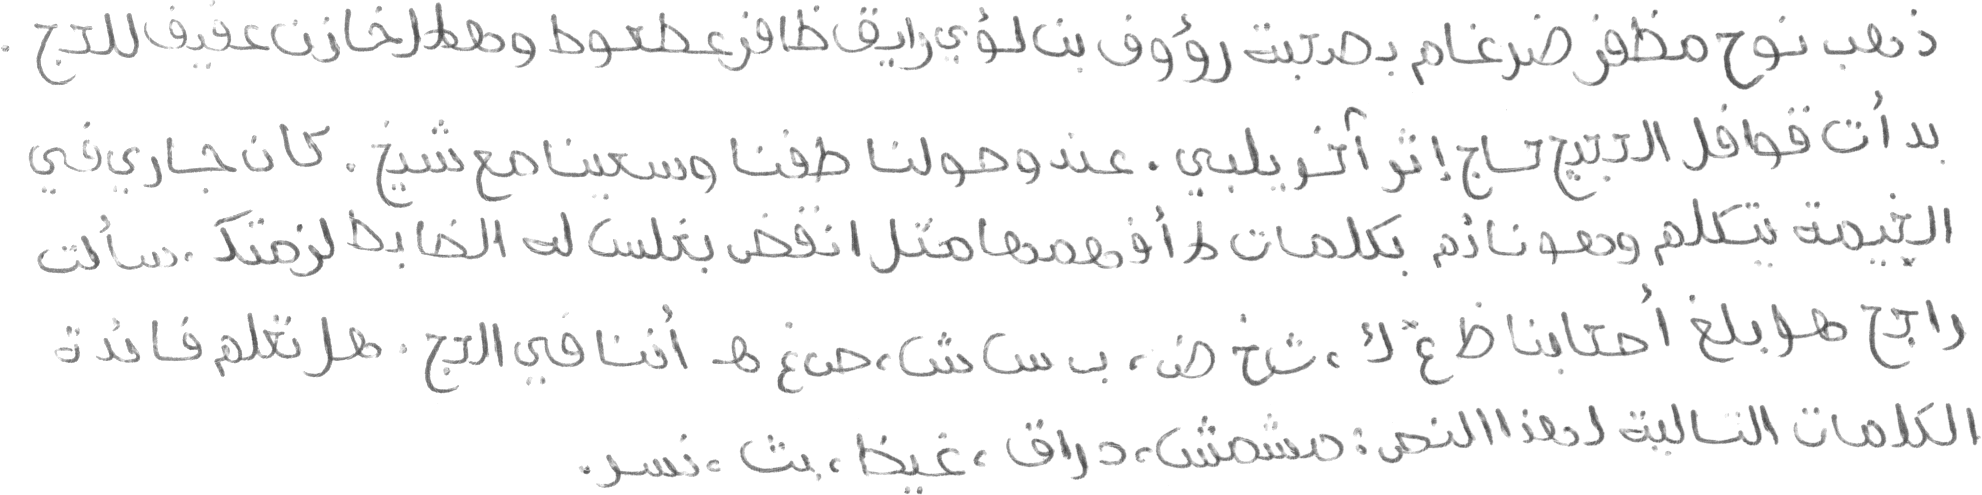 ذهب نوح مظفر ضرغام بصحبة رؤوف بن لؤي رايق ظافر عطعوط وهلال خازن عفيف للحج .
بدأت قوافل الحجيج حاج إثر آخر يلبي . عند وصولنا طفنا وسعينا مع شيخ . كان جاري في
الخيمة يتكلم وهو نائم بكلمات لا أفهمها مثل انقض بغلس له الضابط لزمتك ، سألت
راجح هل بلغ أصحابنا ظ غ ك ، ث خ ض ، ب س ش ، ص غ هـ أننا في الحج . هل تعلم فائدة
الكلمات التالية لهذا النص : مشمش ، دراق ، غيظ ، بث ، نسر .